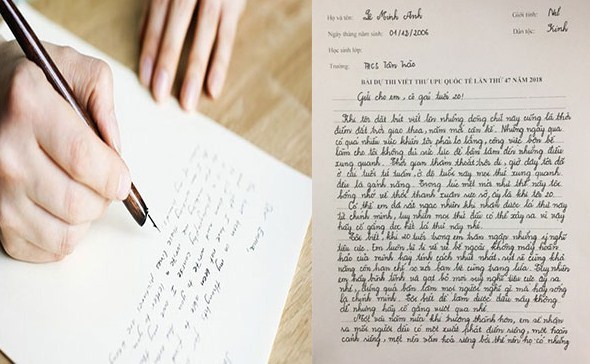 Dear Emma,
Họ và tên: Lê Minh Anh Giới tính: Nữ
Ngày tháng năm sinh: 01/12/2006 Dân tộc: Kinh
Học sinh lớp:
Trường: THCS Tân Trào
BÀI DỰ THI VIẾT THƯ UPU QUỐC TẾ LẦN THỨ 47 NĂM 2018
Gửi cho em, cô gái tuổi 20!
Khi tôi đặt bút viết lên những dòng chữ này cũng là thời
điểm đất trời giao thoa, năm mới cận kề. Những ngày qua
có quá nhiều việc khiến tôi phải lo lắng, công việc bộn bề
làm cho tôi không đủ sức lực để bận tâm đến những điều
xung quanh. Thời gian thấm thoắt trôi đi, giờ đây tôi đã
ở cái tuổi tứ tuần, ở độ tuổi này mọi thứ xung quanh
đều là gánh nặng. Trong lúc mệt mỏi như thế này tôi
bỗng nhớ về thời thanh xuân rực rỡ, ấy là khi ta 20...
Có thể em đã rất ngạc nhiên khi nhận được lá thư này
từ chính mình, tuy nhiên mọi thứ đều có thể xảy ra vì vậy
hãy cố gắng đọc hết lá thư này nhé.
Tôi biết, khi 20 tuổi trong em tràn ngập những suy nghĩ
tiêu cực. Em luôn tự ti về vẻ bề ngoài không mấy hoàn
hảo của mình hay tính cách nhút nhát, rụt rè cùng khả
năng còn hạn chế so với bạn bè cùng trang lứa. Tuy nhiên
em hãy bình tĩnh và gạt bỏ mọi suy nghĩ tiêu cực ấy ra
nhé, đừng quá bận tâm mọi người nghĩ gì mà hãy sống
là chính mình. Tôi biết để làm được điều này không
dễ nhưng hãy cố gắng vượt qua nhé.
Một vài năm nữa khi trưởng thành hơn, em sẽ nhận
ra mỗi người đều có một xuất phát điểm riêng, một hoàn
cảnh riêng, một nền văn hoá riêng bởi thế nên họ có những